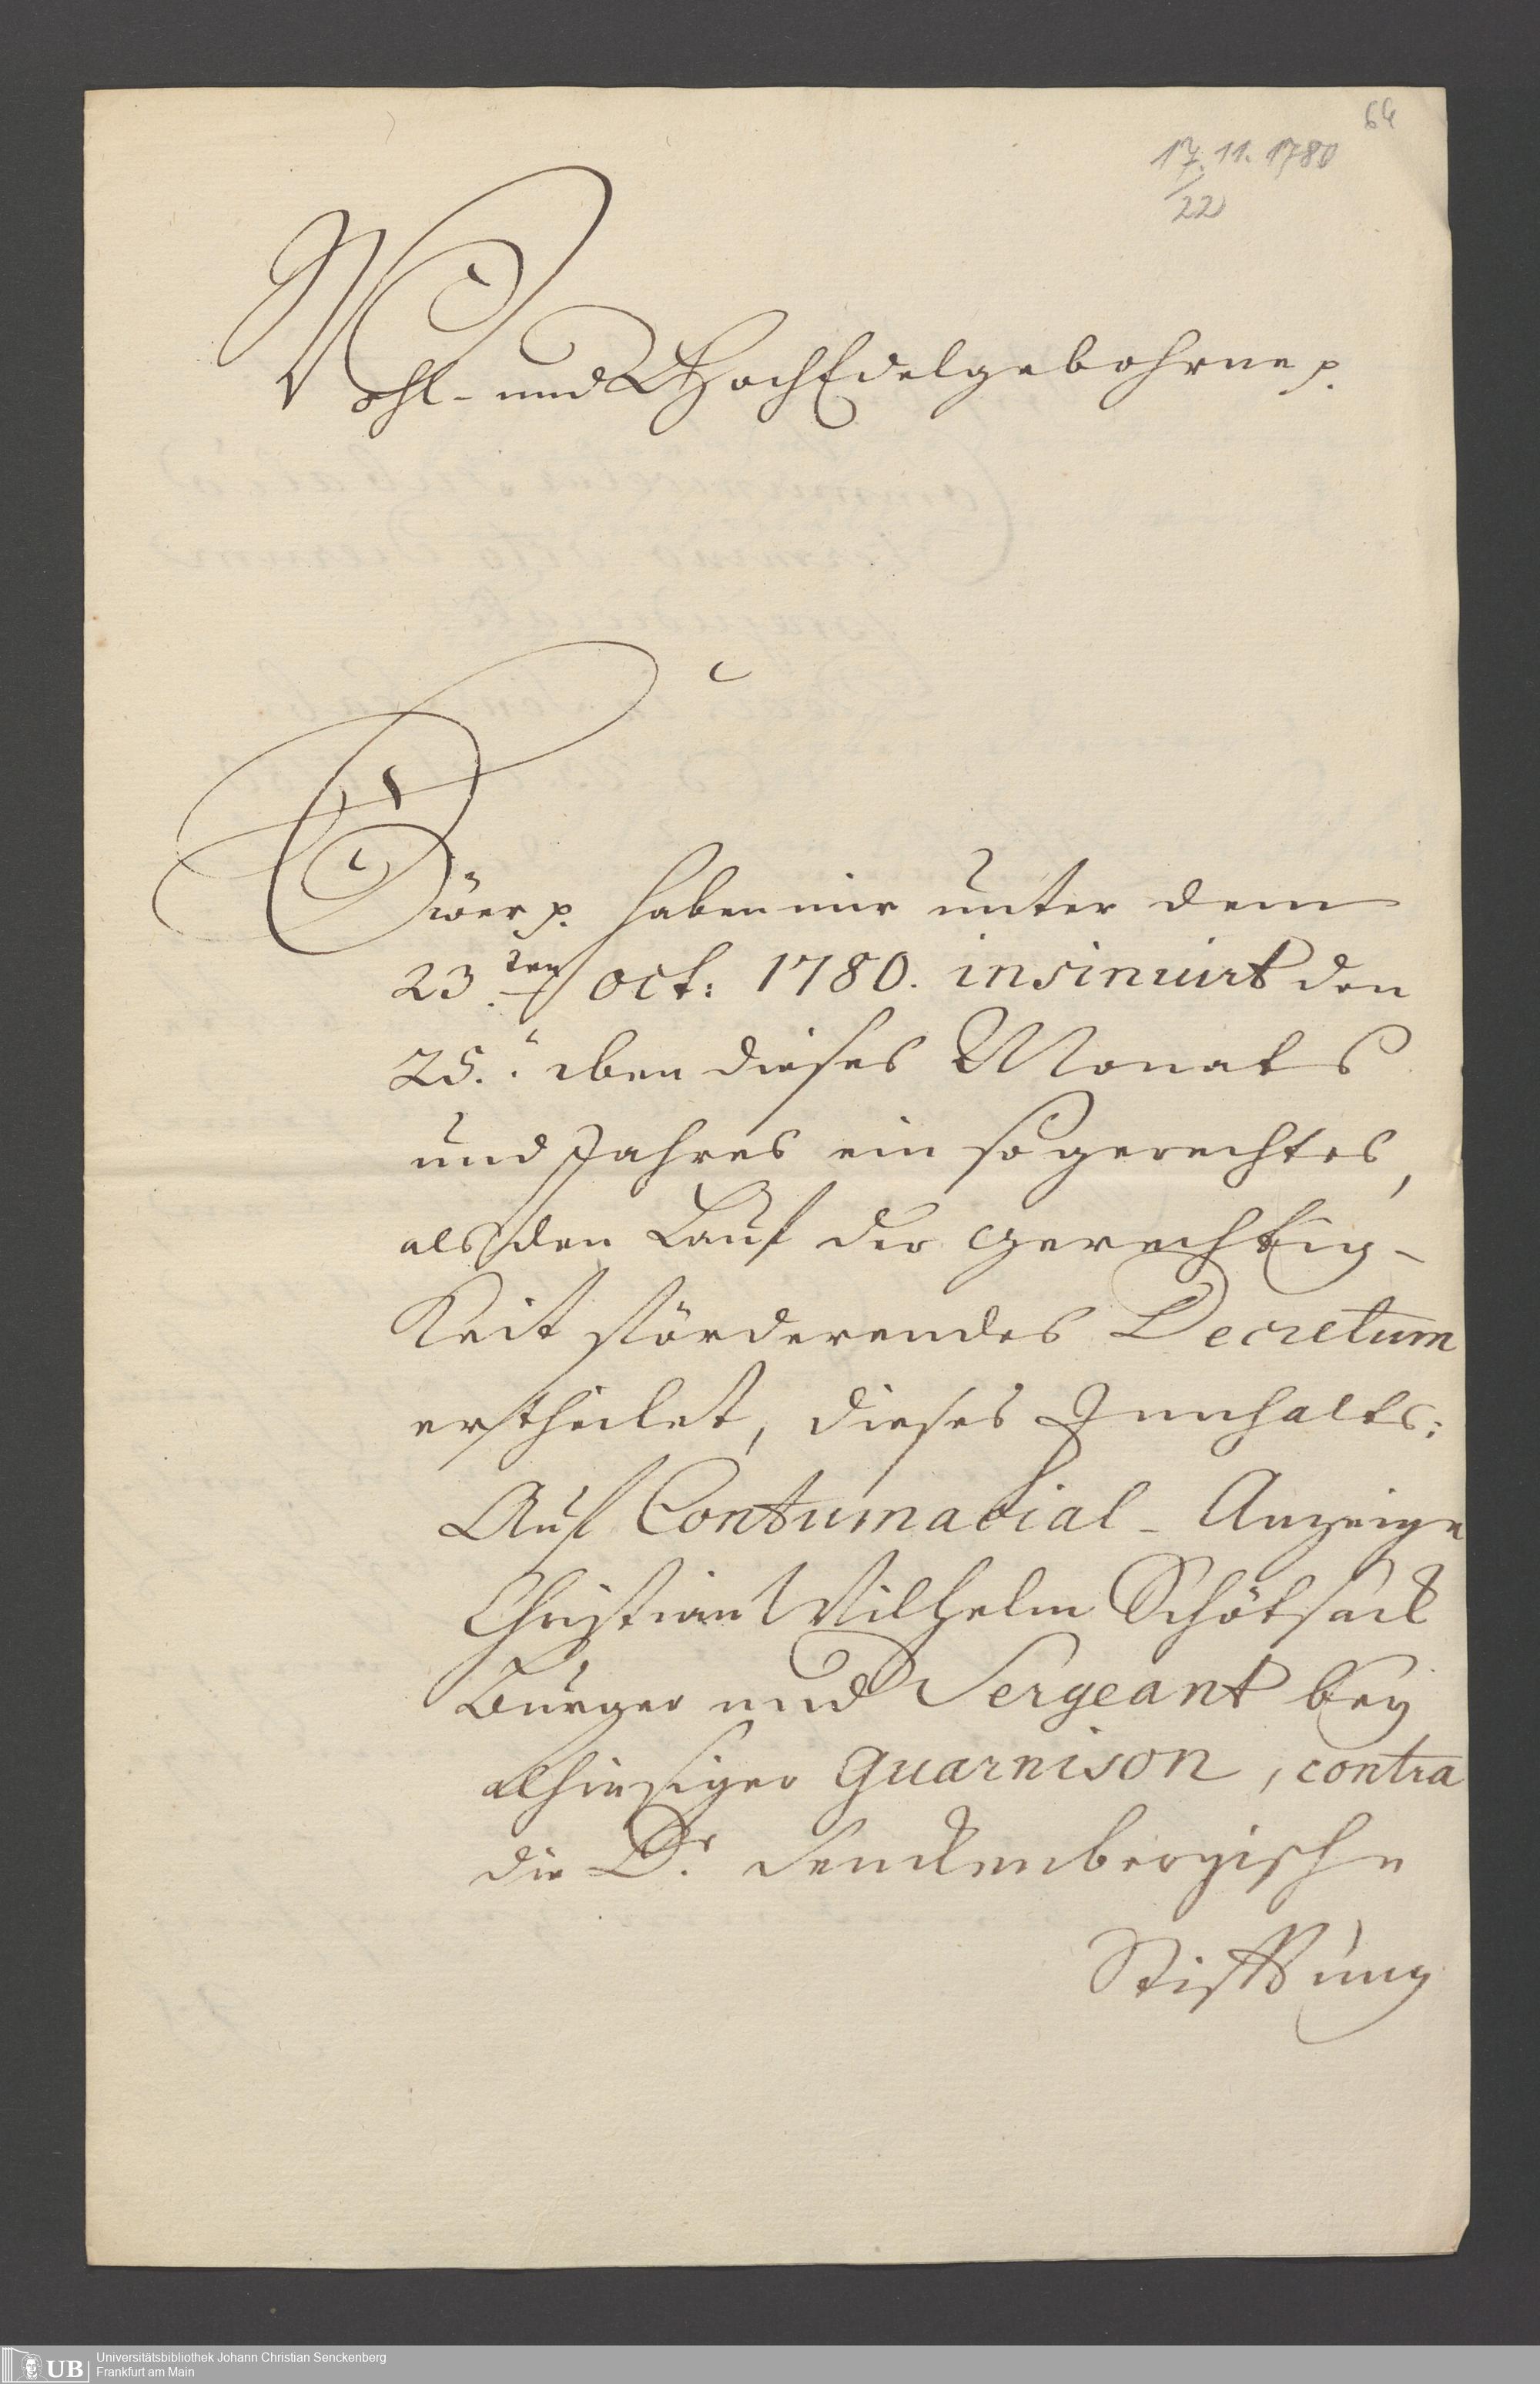 64
17. 11. 1780
/22
Wohl- und HochEdelgebohrne p.
Ewer p. haben mir unter dem
23.ten Oct: 1780. insinuirt den
25. eben dieses Monats
und Jahres ein so gerechtes,
als den Lauf der Gerechtig-
keit förderendes Decretum
ertheilet, dieses Innhalts:
Auf Contumacial-Anzeige
Christian Wilhelm Schötsack
Burger und Sergeant bey
alhiesiger Guarnison, contra
die Dr. Senckenbergische
Stifftung
UB
Universitätsbibliothek Johann Christian Senckenberg
Frankfurt am Main